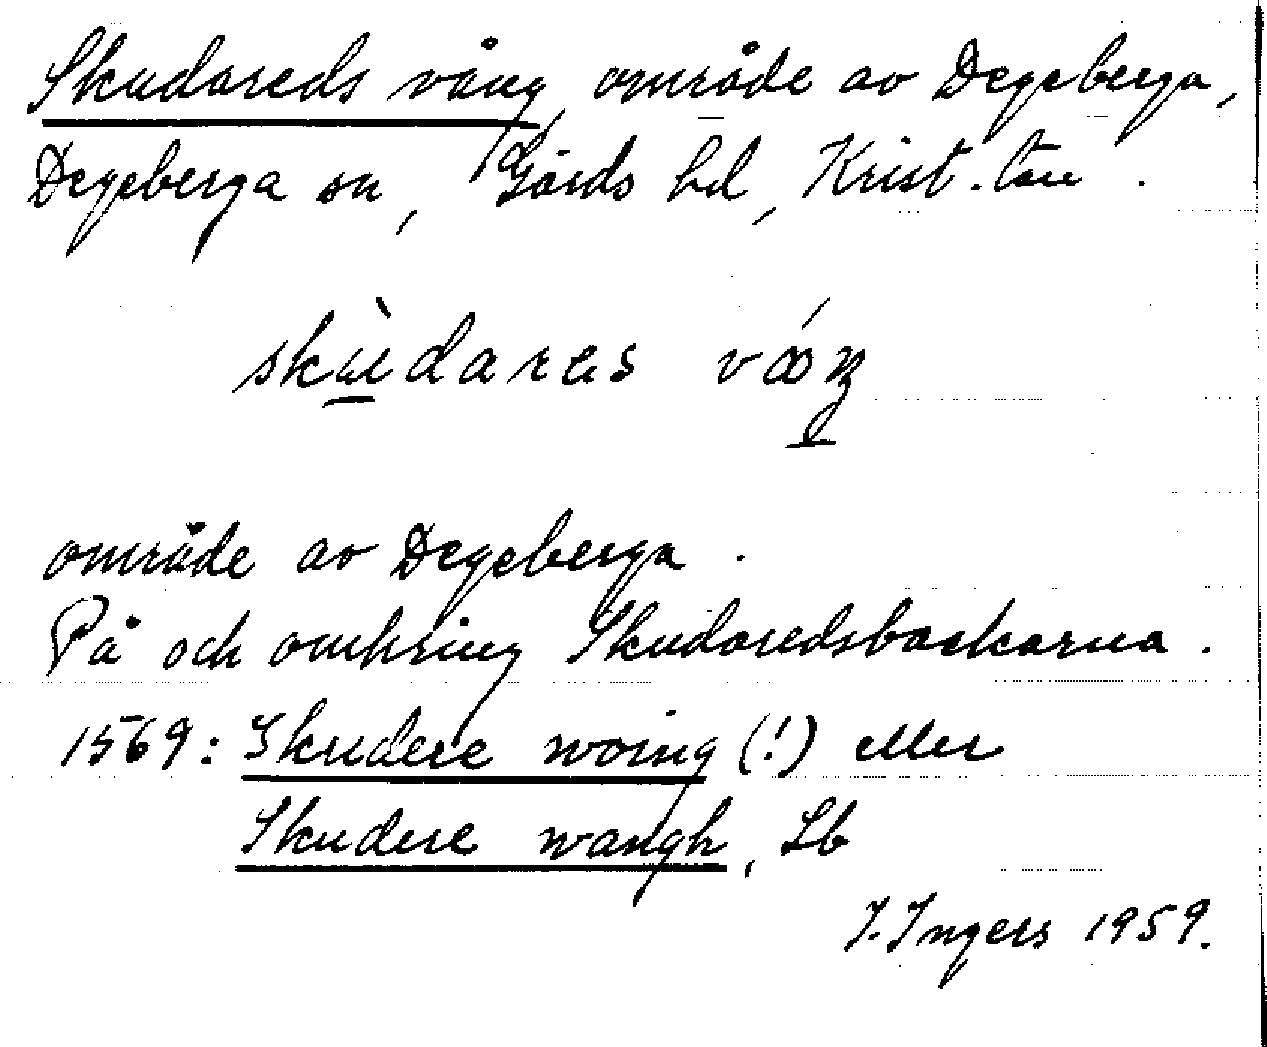 Skudareds vång, område av Degeberga,
Degeberga sn, Gärds hd, Krist. län.
skùdares vǻŋ
område av Degeberga.
På och omkring Skudaredsbackarna.
1569: Skudere woing (!) eller
Skudere wangh, Lb
I. Ingers 1959.